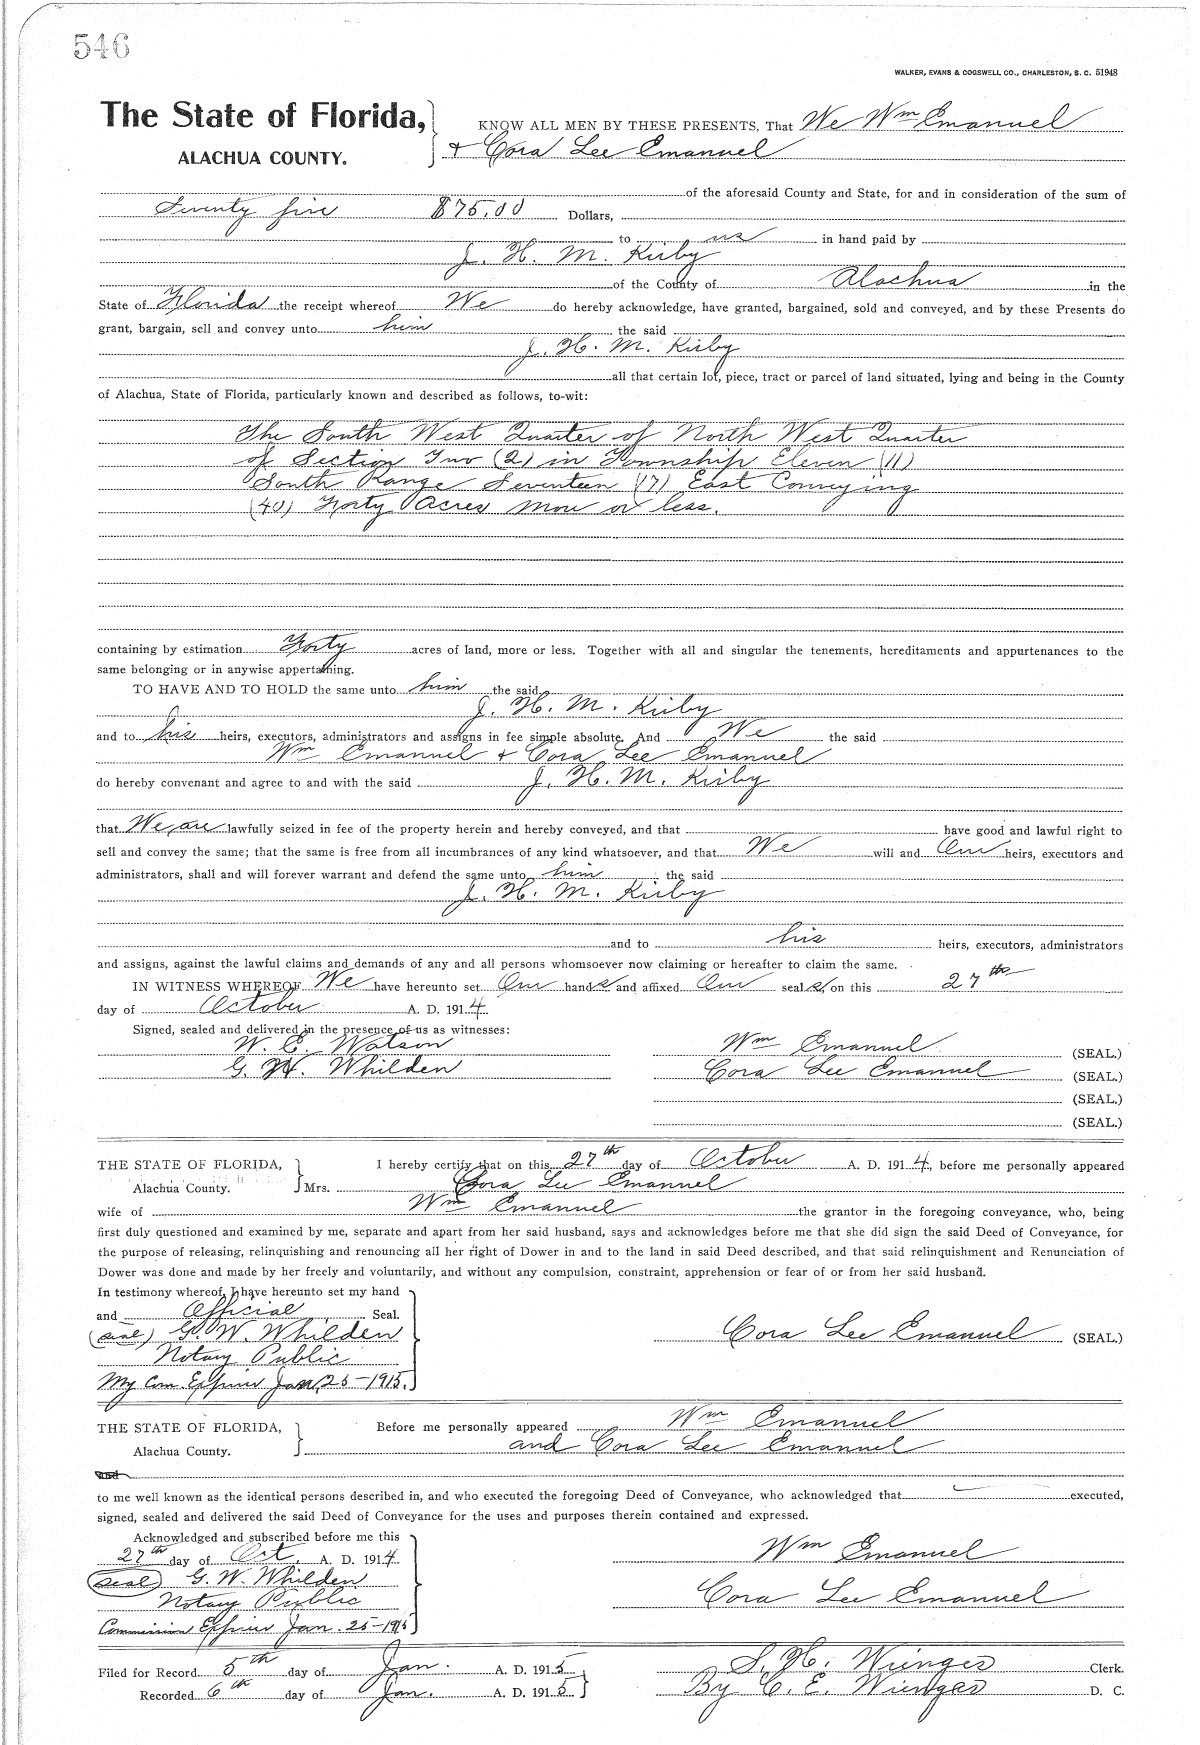 546
WALKER, EVANS & COGSWELL CO., CHARLESTON, S. C. 51948
The State of Florida,
ALACHUA COUNTY.
KNOW ALL MEN BY THESE PRESENTS, That We Wm Emanuel
& Cora Lee Emanuel
of the aforesaid County and State, for and in consideration of the sum of
Seventy five $75.00 Dollars,
to us in hand paid by
J. H. M. Kirby
of the County of Alachua in the
State of Florida the receipt whereof We do hereby acknowledge, have granted, bargained, sold and conveyed, and by these Presents do
grant, bargain, sell and convey unto him the said
J. H. M. Kirby
all that certain lot, piece, tract or parcel of land situated, lying and being in the County
of Alachua, State of Florida, particularly known and described as follows, to-wit:
The South West Quarter of North West Quarter
of Section Two (2) in Township Eleven (11)
South Range Seventeen (17) East Conveying
(40) Forty Acres more or less.
containing by estimation Forty acres of land, more or less. Together with all and singular the tenements, hereditaments and appurtenances to the
same belonging or in anywise appertaining.
TO HAVE AND TO HOLD the same unto him the said
J. H. M. Kirby
and to his heirs, executors, administrators and assigns in fee simple absolute. And We the said
Wm Emanuel & Cora Lee Emanuel
do hereby convenant and agree to and with the said J. H. M. Kirby
that We are lawfully seized in fee of the property herein and hereby conveyed, and that have good and lawful right to
sell and convey the same; that the same is free from all incumbrances of any kind whatsoever, and that We will and Our heirs, executors and
administrators, shall and will forever warrant and defend the same unto him the said
J. H. M. Kirby
and to his heirs, executors, administrators
and assigns, against the lawful claims and demands of any and all persons whomsoever now claiming or hereafter to claim the same.
IN WITNESS WHEREOF We have hereunto set Our hands and affixed Our seals on this 27th
day of October A. D. 1914.
Signed, sealed and delivered in the presence of us as witnesses:
W. E. Watson Wm Emanuel (SEAL.)
G. W. Whilden Cora Lee Emanuel (SEAL.)
(SEAL.)
(SEAL.)
THE STATE OF FLORIDA, I hereby certify that on this 27th day of October A. D. 1914, before me personally appeared
Alachua County. Mrs. Cora Lee Emanuel
wife of Wm Emanuel the grantor in the foregoing conveyance, who, being
first duly questioned and examined by me, separate and apart from her said husband, says and acknowledges before me that she did sign the said Deed of Conveyance, for
the purpose of releasing, relinquishing and renouncing all her right of Dower in and to the land in said Deed described, and that said relinquishment and Renunciation of
Dower was done and made by her freely and voluntarily, and without any compulsion, constraint, apprehension or fear of or from her said husband.
In testimony whereof, I have hereunto set my hand
and Official Seal.
(seal) G. W. Whilden Cora Lee Emanuel (SEAL.)
Notary Public
My Com. Expires Jan. 25-1915.
THE STATE OF FLORIDA, Before me personally appeared Wm Emanuel
Alachua County. and Cora Lee Emanuel
and
to me well known as the identical persons described in, and who executed the foregoing Deed of Conveyance, who acknowledged that executed,
signed, sealed and delivered the said Deed of Conveyance for the uses and purposes therein contained and expressed.
Acknowledged and subscribed before me this
27th day of Oct. A. D. 1914. Wm Emanuel
(seal) G. W. Whilden
Notary Public Cora Lee Emanuel
Commission Expires Jan. 25-1915
Filed for Record 5th day of Jan. A. D. 1915 S. H. Wienges Clerk.
Recorded 6th day of Jan. A. D. 1915 By C. E. Wienges D. C.